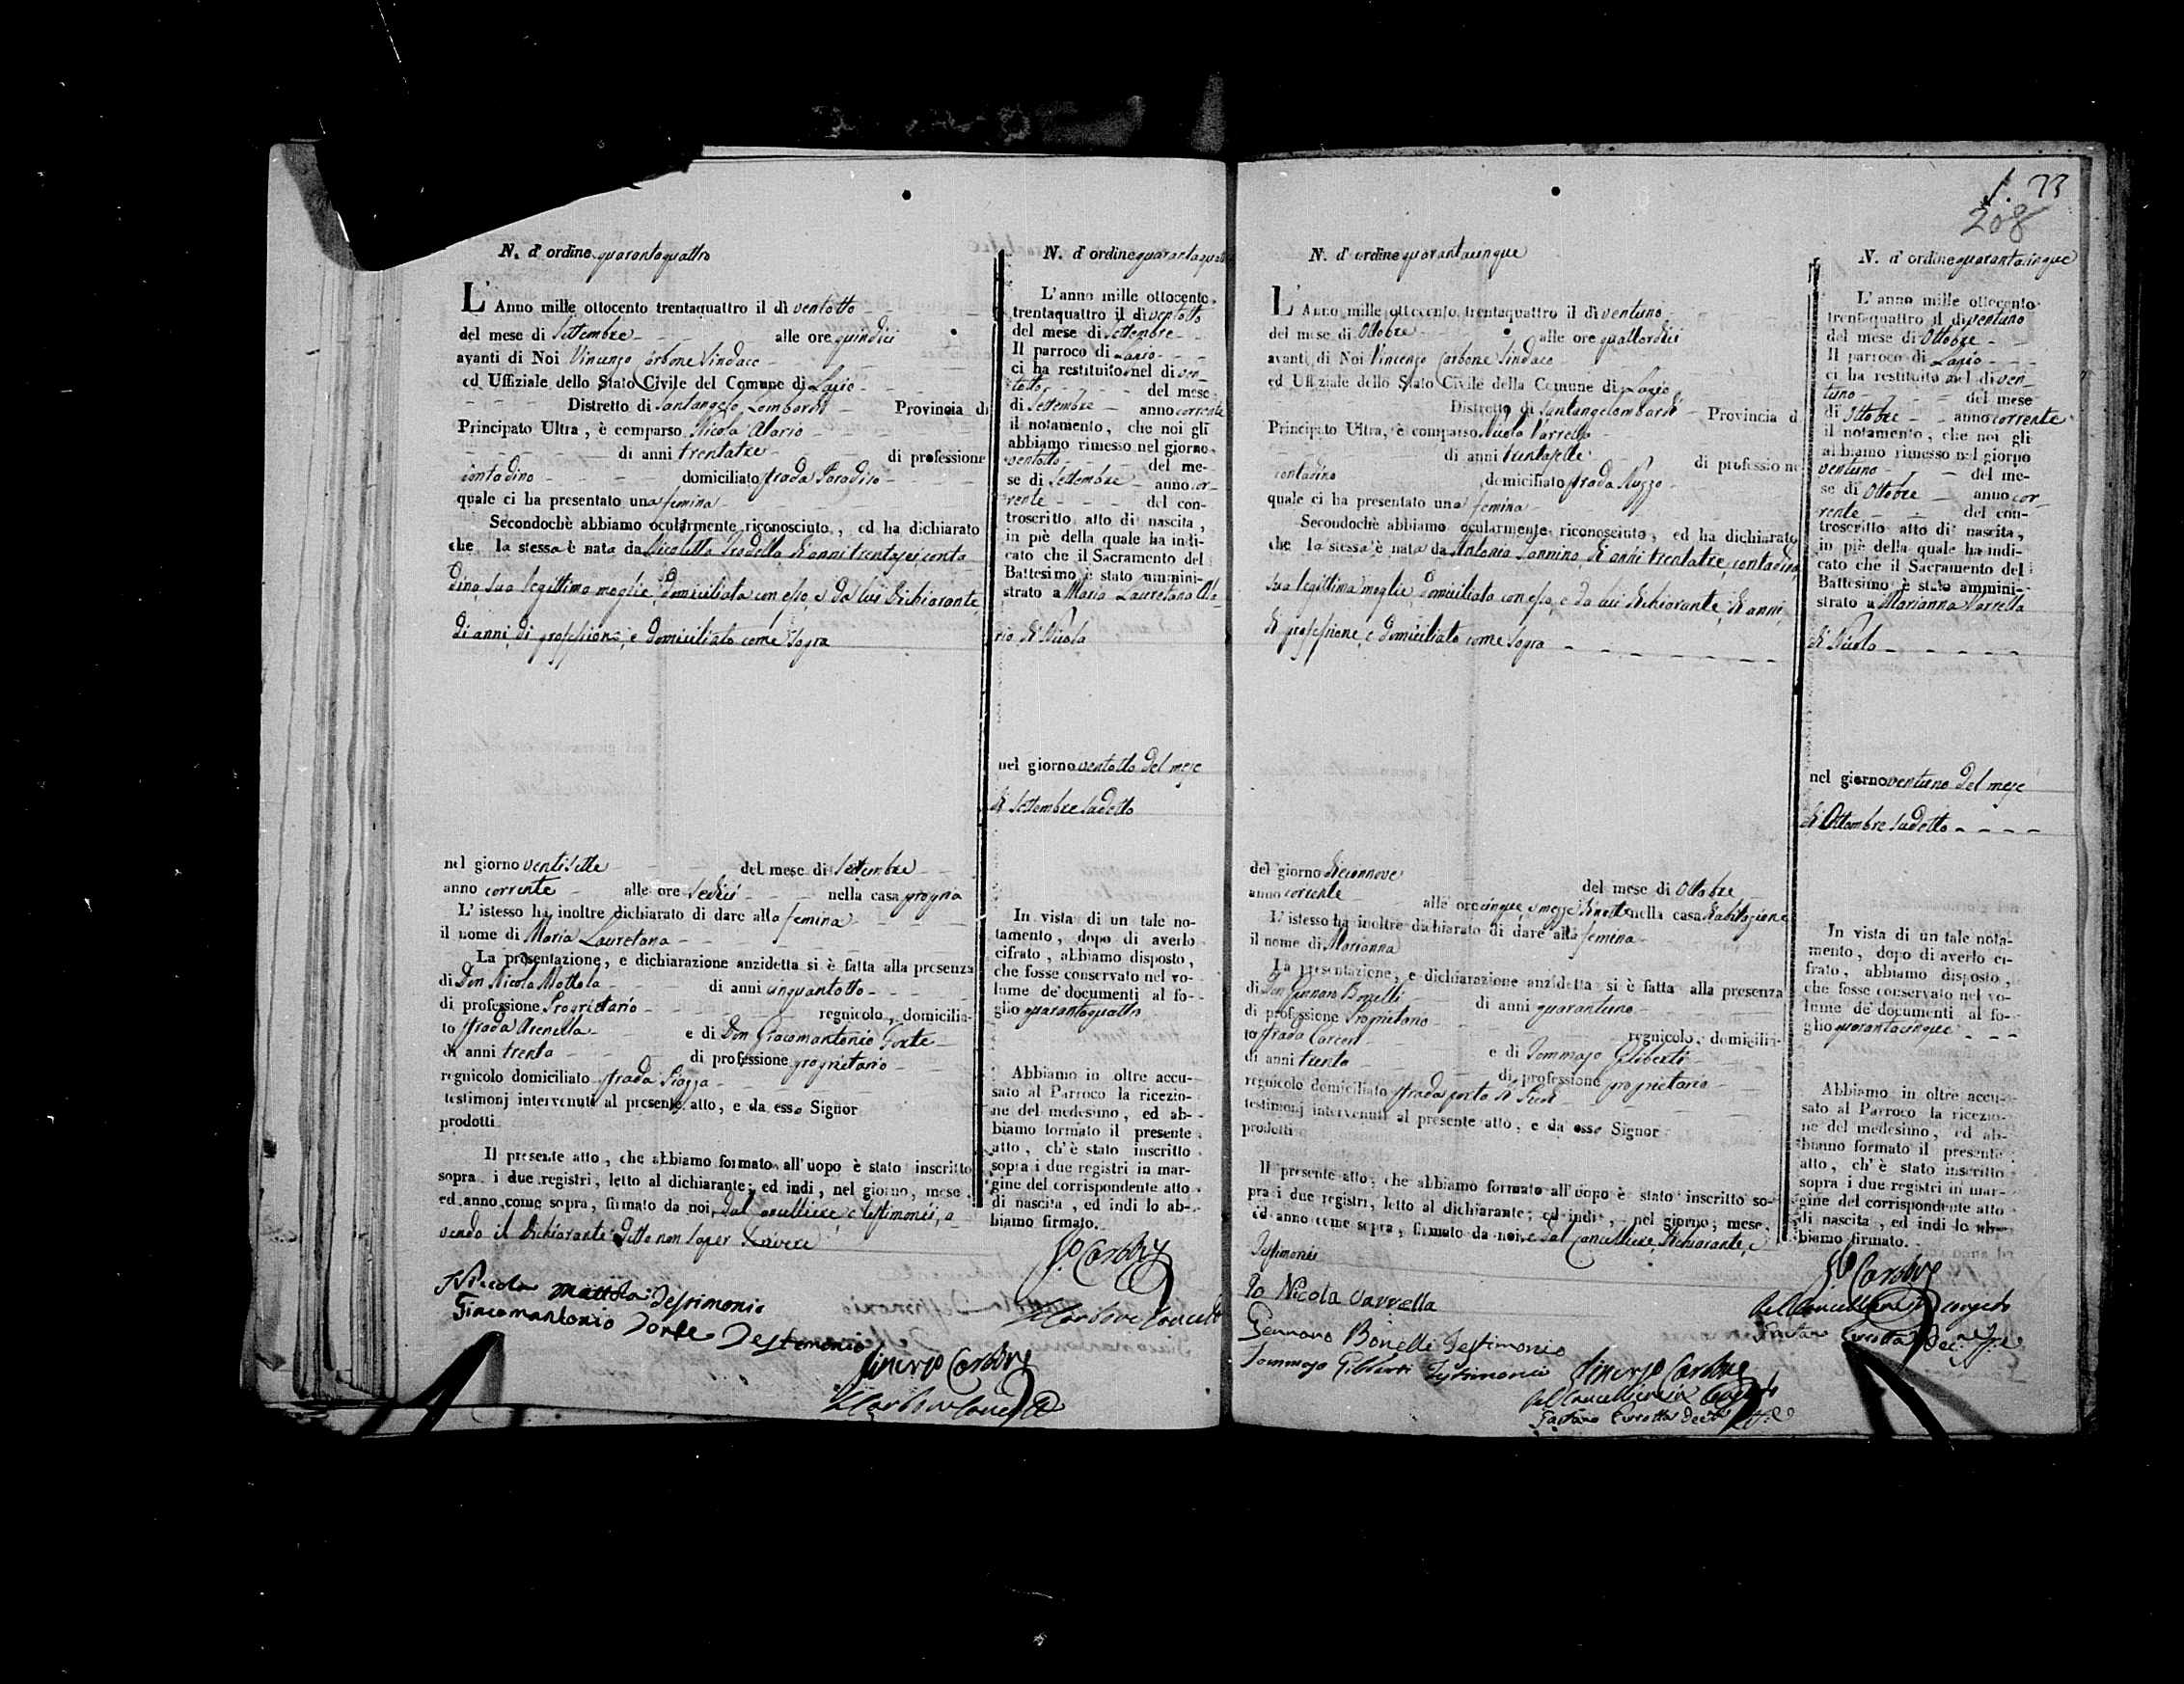 N. d' ordine quarantaquattro
L' Anno mille ottocento trentaquattro il dì ventotto
del mese di Settembre alle ore quindici
avanti di Noi Vincenzo Carbone Sindaco
ed Uffiziale dello Stato Civile del Comune di Lapio
Distretto di Santangelo Lombardi Provincia di
Principato Ultra, è comparso Nicola Alario
di anni trentatre di professione
contadino domiciliato strada Paradiso
quale ci ha presentato una femina
Secondochè abbiamo ocularmente riconosciuto, ed ha dichiarato
che la stessa è nata da Nicoletta di anni trentasei, conta
dina, sua legittima moglie, domiciliata con esso, e da lui dichiarante,
di anni, di professione, e domiciliato come sopra
nel giorno ventisette del mese di Settembre
anno corrente alle ore sedici nella casa propria
L' istesso ha inoltre dichiarato di dare alla femina
il nome di Maria Lauretana
La presentazione, e dichiarazione anzidetta si è fatta alla presenza
di Don Nicola Mottola di anni cinquantotto
di professione Proprietario regnicolo, domicilia-
to strada Arenella e di Don Giacomantonio Forte
di anni trenta di professione proprietario
regnicolo domiciliato strada Piazza
testimonj intervenuti al presente atto, e da esso Signor
prodotti
Il presente atto, che abbiamo formato all'uopo è stato inscritto
sopra i due registri, letto al dichiarante; ed indi, nel giorno, mese
ed anno come sopra, firmato da noi, dal cancelliere, e testimonii, a
vendo il dichiarante detto non saper scrivere
Niccola Mottola Testimonio
Giacomantonio Forte Testimonio
Vincenzo Carbone
N. d' ordine quarantaquat
L' anno mille ottocento
trentaquattro il dì ventotto
del mese di Settembre
Il parroco di Lapio
ci ha restituito nel dì ven-
totto del mese
di Settembre anno corrente
il notamento, che noi gli
abbiamo rimesso nel giorno
ventotto del me-
se di Settembre anno cor-
rente del con-
troscritto atto di nascita,
in piè della quale ha indi-
cato che il Sacramento del
Battesimo è stato ammini-
strato a Maria Lauretana Ala-
rio di Nicola
nel giorno ventotto del mese
di Settembre sudetto
In vista di un tale no-
tamento, dopo di averlo
cifrato, abbiamo disposto,
che fosse conservato nel vo-
lume de' documenti al fo-
glio quarantaquattro
Abbiamo in oltre accu-
sato al Parroco la ricezio-
ne del medesimo, ed ab-
biamo formato il presente
atto, ch' è stato inscritto
sopra i due registri in mar-
gine del corrispondente atto
di nascita, ed indi lo ab-
biamo firmato.
Carbone
208
N. d' ordine quarantacinque
L' Anno mille ottocento trentaquattro il dì ventuno
del mese di Ottobre alle ore quattordici
avanti di Noi Vincenzo Carbone Sindaco
ed Uffiziale dello Stato Civile della Comune di Lapio
Distretto di Santangelombardi Provincia d
Principato Ultra, è comparso Nicola Varrella
di anni trentasette di professione
contadino domiciliato strada Puzzo
quale ci ha presentato una femina
Secondochè abbiamo ocularmente riconosciuto, ed ha dichiarato
che la stessa è nata da Antonia Iannino, di anni trentatre, contadina,
sua legittima moglie, domiciliata con esso, e da lui dichiarante, di anni,
di professione, e domiciliato come sopra
del giorno diciannove del mese di Ottobre
anno corrente alle ore cinque, e mezza di notte nella casa d'abitazione
L' istesso ha inoltre dichiarato di dare alla femina
il nome di Marianna
La presentazione, e dichiarazione anzidetta si è fatta alla presenza
di Don Gennaro Bonelli di anni quarantuno
di professione Proprietario regnicolo, domicilia-
to strada Carceri e di Tommaso Gliberti
di anni trenta di professione proprietario
regnicolo domiciliato strada porta di
testimonj intervenuti al presente atto, e da esso Signor
prodotti
Il presente atto, che abbiamo formato all'uopo è stato inscritto so-
pra i due registri, letto al dichiarante; ed indi, nel giorno, mese,
ed anno come sopra, firmato da noi, e dal Cancelliere, dichiarante, e
testimonii
Io Nicola Varrella
Gennaro Bonelli Testimonio
Tommaso Gliberti Testimonio
Vincenzo Carbone
N. d' ordine quarantacinque
L' anno mille ottocento
trentaquattro il dì ventuno
del mese di Ottobre
Il parroco di Lapio
ci ha restituito nel dì ven-
tuno del mese
di Ottobre anno corrente
il notamento, che noi gli
abbiamo rimesso nel giorno
ventuno del me-
se di Ottobre anno cor-
rente del con-
troscritto atto di nascita,
in piè della quale ha indi-
cato che il Sacramento del
Battesimo è stato ammini-
strato a Marianna Varrella
di Nicola
nel giorno ventuno del mese
di Ottobre sudetto
In vista di un tale nota-
mento, dopo di averlo ci-
frato, abbiamo disposto,
che fosse conservato nel vo-
lume de' documenti al fo-
glio quarantacinque
Abbiamo in oltre accu-
sato al Parroco la ricezio-
ne del medesimo, ed ab-
biamo formato il presente
atto, ch' è stato inscritto
sopra i due registri in mar-
gine del corrispondente atto
di nascita, ed indi lo ab-
biamo firmato.
Carbone